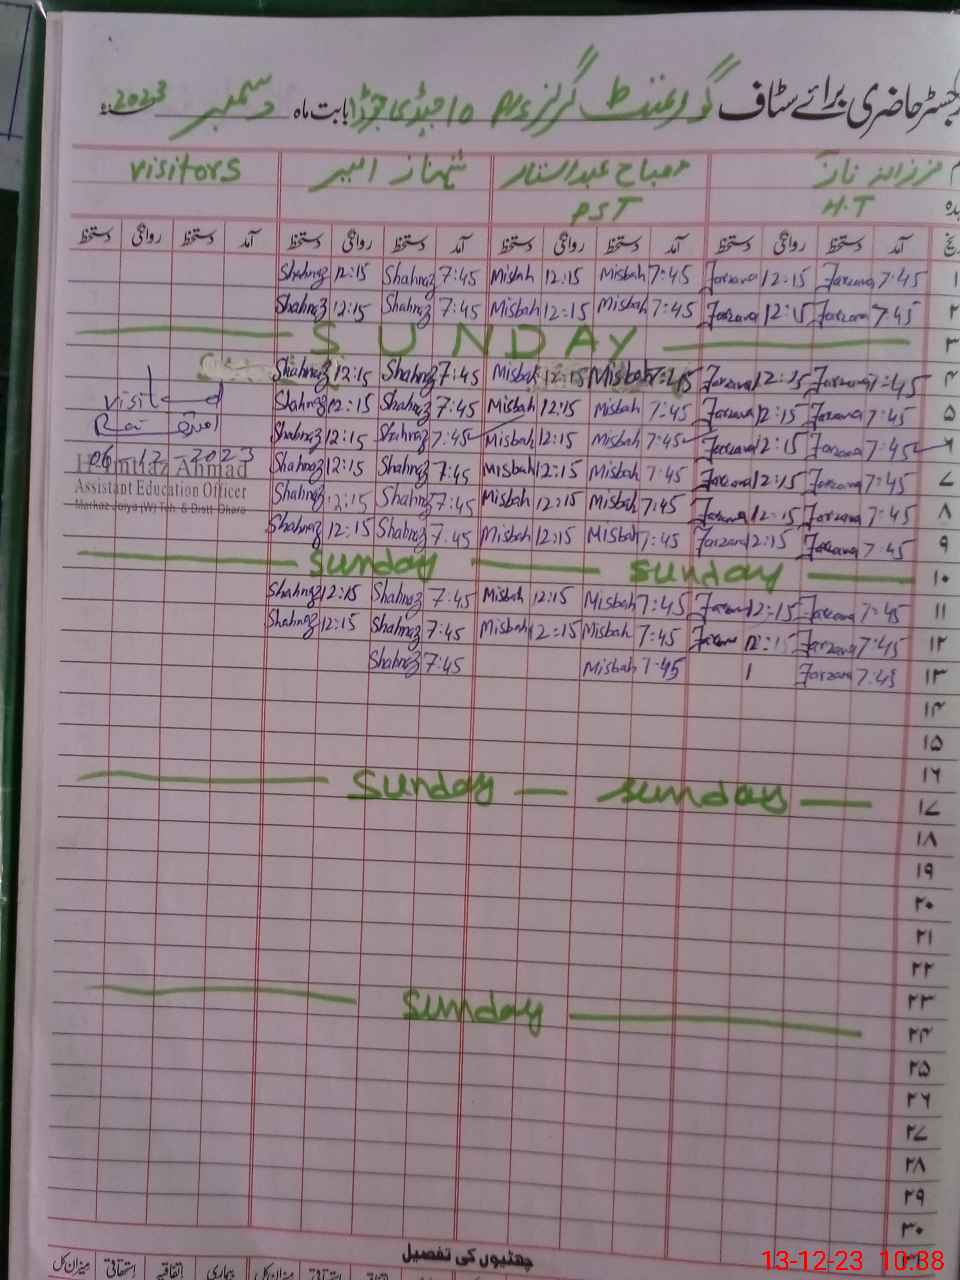 رجسٹر حاضری برائے سٹاف گورنمنٹ گرلز بابت ماہ دسمبر 2023
فرزانہ ناز مصباح عبدالستار شہناز visitors
H.T PST
آمد دستخط روانگی دستخط آمد دستخط روانگی دستخط آمد دستخط روانگی دستخط آمد دستخط روانگی دستخط
۱ 7:45 Farzana 12:15 Farzana 7:45 Misbah 12:15 Misbah 7:45 Shahnaz 12:15 Shahnaz
۲ 7:45 Farzana 12:15 Farzana 7:45 Misbah 12:15 Misbah 7:45 Shahnaz 12:15 Shahnaz
۳ SUNDAY
۴ 7:45 Farzana 12:15 Farzana 7:45 Misbah 12:15 Misbah 7:45 Shahnaz 12:15 Shahnaz
۵ 7:45 Farzana 12:15 Farzana 7:45 Misbah 12:15 Misbah 7:45 Shahnaz 12:15 Shahnaz
۶ 7:45 Farzana 12:15 Farzana 7:45 Misbah 12:15 Misbah 7:45 Shahnaz 12:15 Shahnaz
۷ 7:45 Farzana 12:15 Farzana 7:45 Misbah 12:15 Misbah 7:45 Shahnaz 12:15 Shahnaz
۸ 7:45 Farzana 12:15 Farzana 7:45 Misbah 12:15 Misbah 7:45 Shahnaz 12:15 Shahnaz
۹ 7:45 Farzana 12:15 Farzana 7:45 Misbah 12:15 Misbah 7:45 Shahnaz 12:15 Shahnaz
visited
06-12-2023
Imtiaz Ahmad
Assistant Education Officer
Markaz (W) Teh. & Distt
۱۰ sunday sunday
۱۱ 7:45 Farzana 12:15 Farzana 7:45 Misbah 12:15 Misbah 7:45 Shahnaz 12:15 Shahnaz
۱۲ 7:45 Farzana 12:15 Farzana 7:45 Misbah 12:15 Misbah 7:45 Shahnaz 12:15 Shahnaz
۱۳ 7:45 Farzana 7:45 Misbah 7:45 Shahnaz
۱۴
۱۵
۱۶
۱۷ Sunday sunday
۱۸
۱۹
۲۰
۲۱
۲۲
۲۳
۲۴ sunday
۲۵
۲۶
۲۷
۲۸
۲۹
۳۰
۳۱
چھٹیوں کی تفصیل
میزان کل بیماری اتفاقیہ استحقاقی میزان کل
13-12-23 10:38